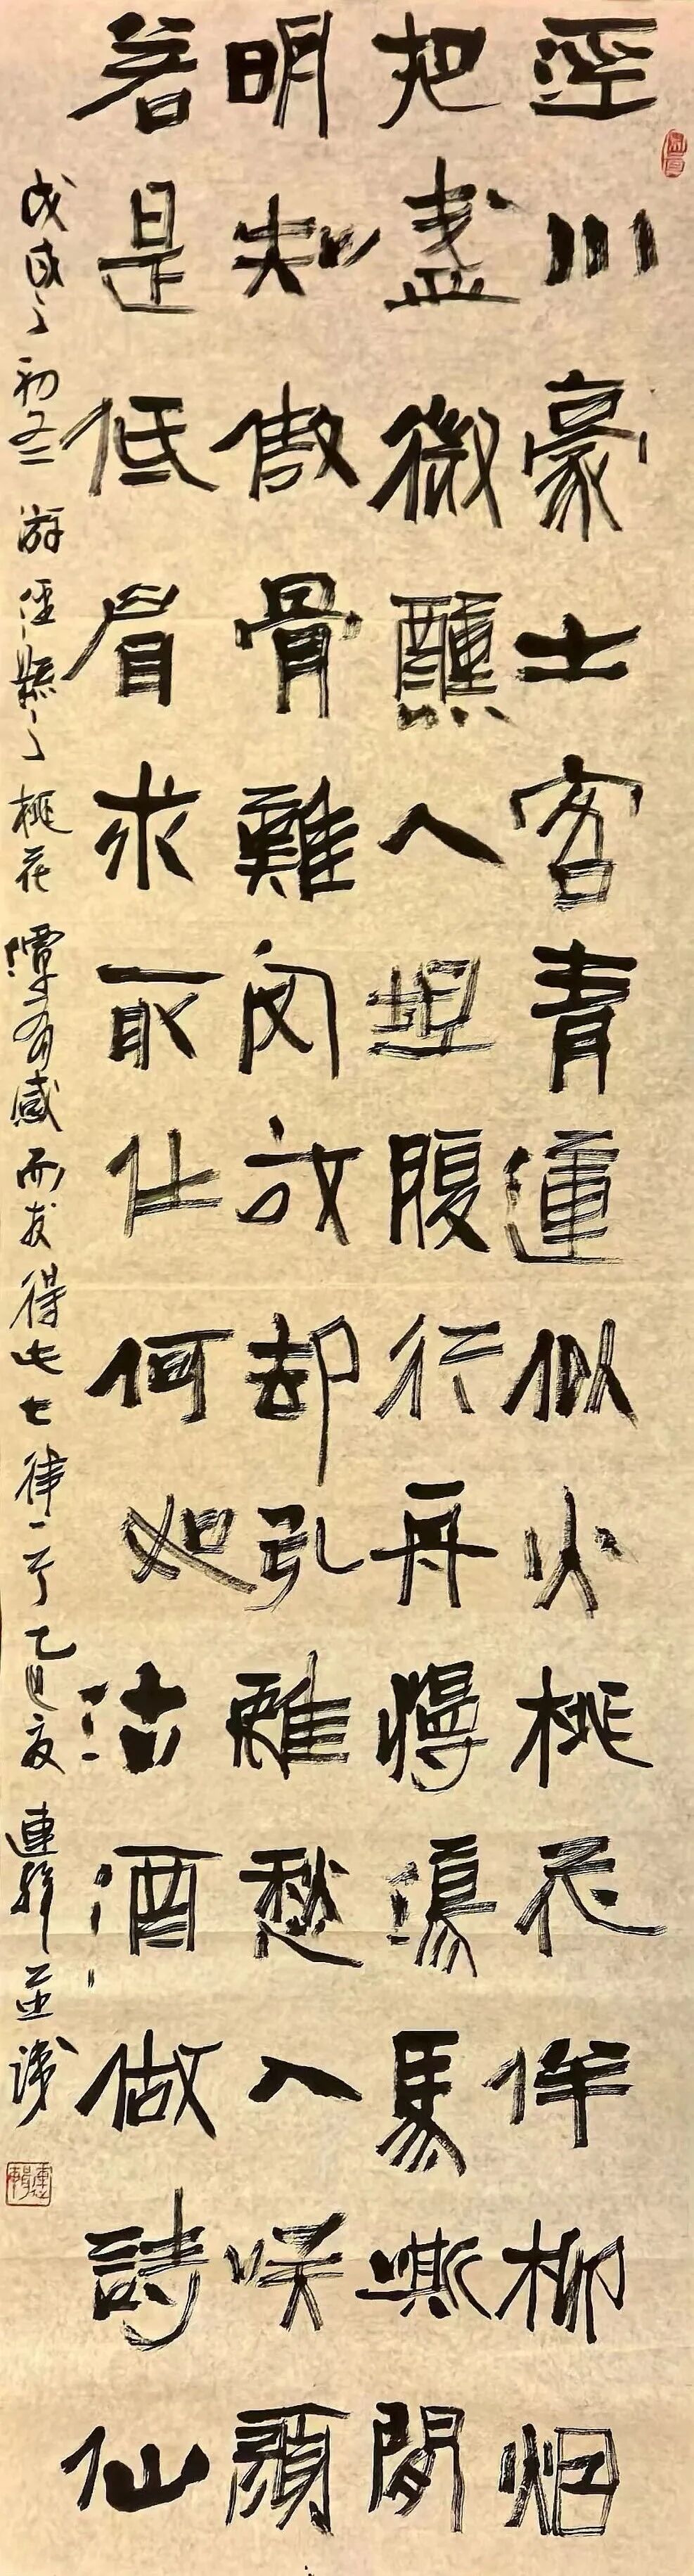 涇川豪士客青蓮似火桃花伴柳烟
把盞微醺人坦腹行舟慢蕩馬嘶間
明知傲骨難放却引離愁入咲顏
若是低眉求取仕何如沽酒做詩仙
戊戌之初冬游涇縣之桃花潭有感而發得此七律一首乙巳夏連輝並識